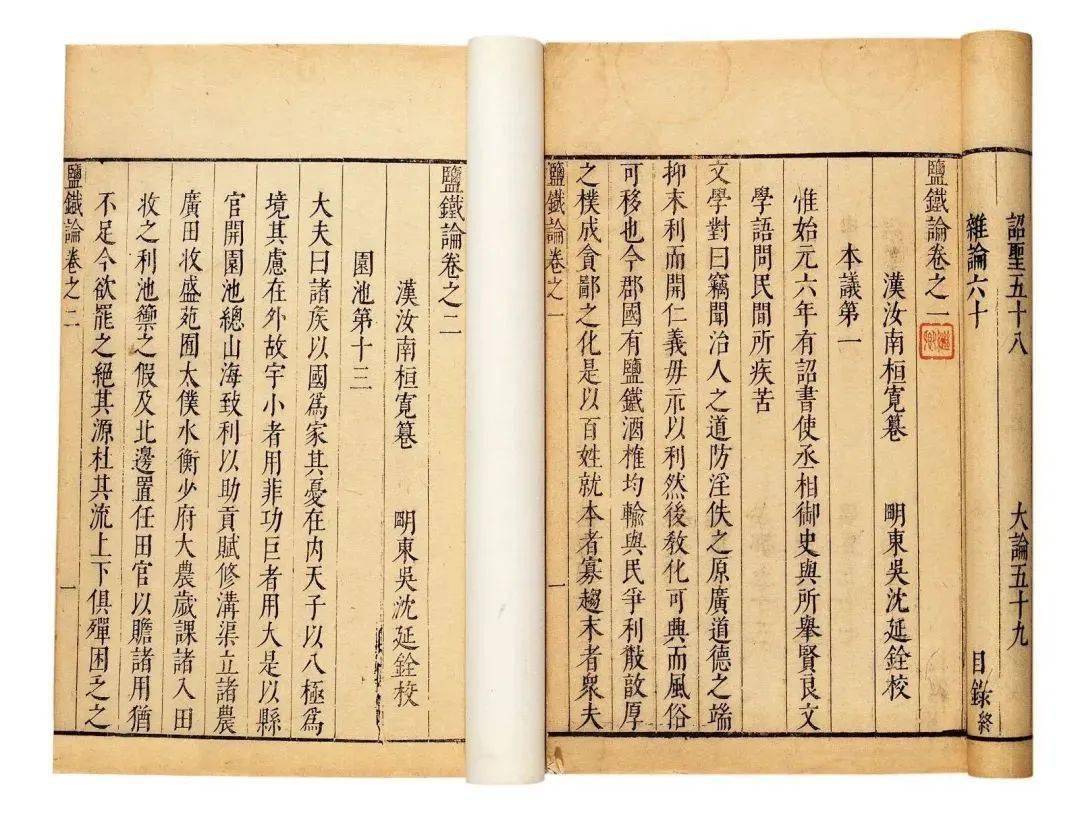 詔聖五十八 大論五十九
雜論六十 目錄終
鹽鐵論卷之一
漢汝南桓寬篹 明東吳沈延銓校
本議第一
惟始元六年有詔書使丞相御史與所舉賢良文
學語問民間所疾苦
文學對曰竊聞治人之道防淫佚之原廣道德之端
抑末利而開仁義毋示以利然後教化可興而風俗
可移也今郡國有鹽鐵酒榷均輸與民爭利散敦厚
之樸成貪鄙之化是以百姓就本者寡趨末者衆夫
鹽鐵論卷之一 一
鹽鐵論卷之二
漢汝南桓寬篹 明東吳沈延銓校
園池第十三
大夫曰諸侯以國爲家其憂在内天子以八極爲
境其慮在外故宇小者用菲功巨者用大是以縣
官開園池總山海致利以助貢賦修溝渠立諸農
廣田收盛苑囿太僕水衡少府大農歲課諸入田
收之利池籞之假及北邊置任田官以贍諸用猶
不足今欲罷之絕其源杜其流上下俱殫困乏之
鹽鐵論卷之二 一